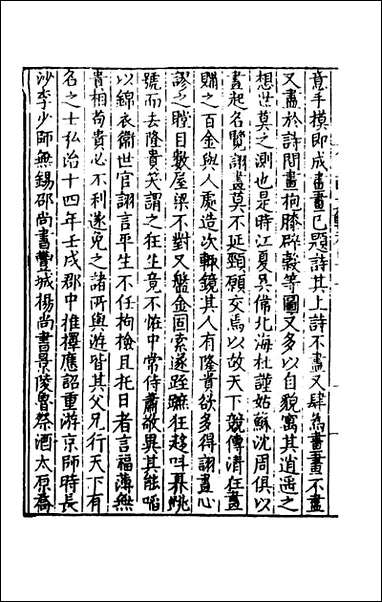 意手摸即成畫畫已題詩其上詩不盡又肆為畫畫不盡
又盡於詩間畫抱膝辟穀等圖又多以自貌寓其逍遥之
想世莫之測也是時江夏吳偉北海杜謹姑蘇沈周俱以
畫起名覽詡畫莫不延頸願交焉以故天下競傳清狂畫
購之百金與人處造次輒鏡其人有隆貴欲多得詡畫心
謬之瞠目數屋梁不對又盤金固索遂跣蹶狂趍叫
號而去隆貴笑謂之狂生竟不恠中常侍蕭敬異其能啗
以錦衣衛世官詡言平生不任拘檢且托日者言福薄無
貴相苟貴必不利遂免之諸所與遊皆其父兄行天下有
名之士弘治十四年壬戌郡中推擇應詔重游京師時長
沙李少師無錫邵尚書豐城揚尚書景陵魯祭酒太原喬